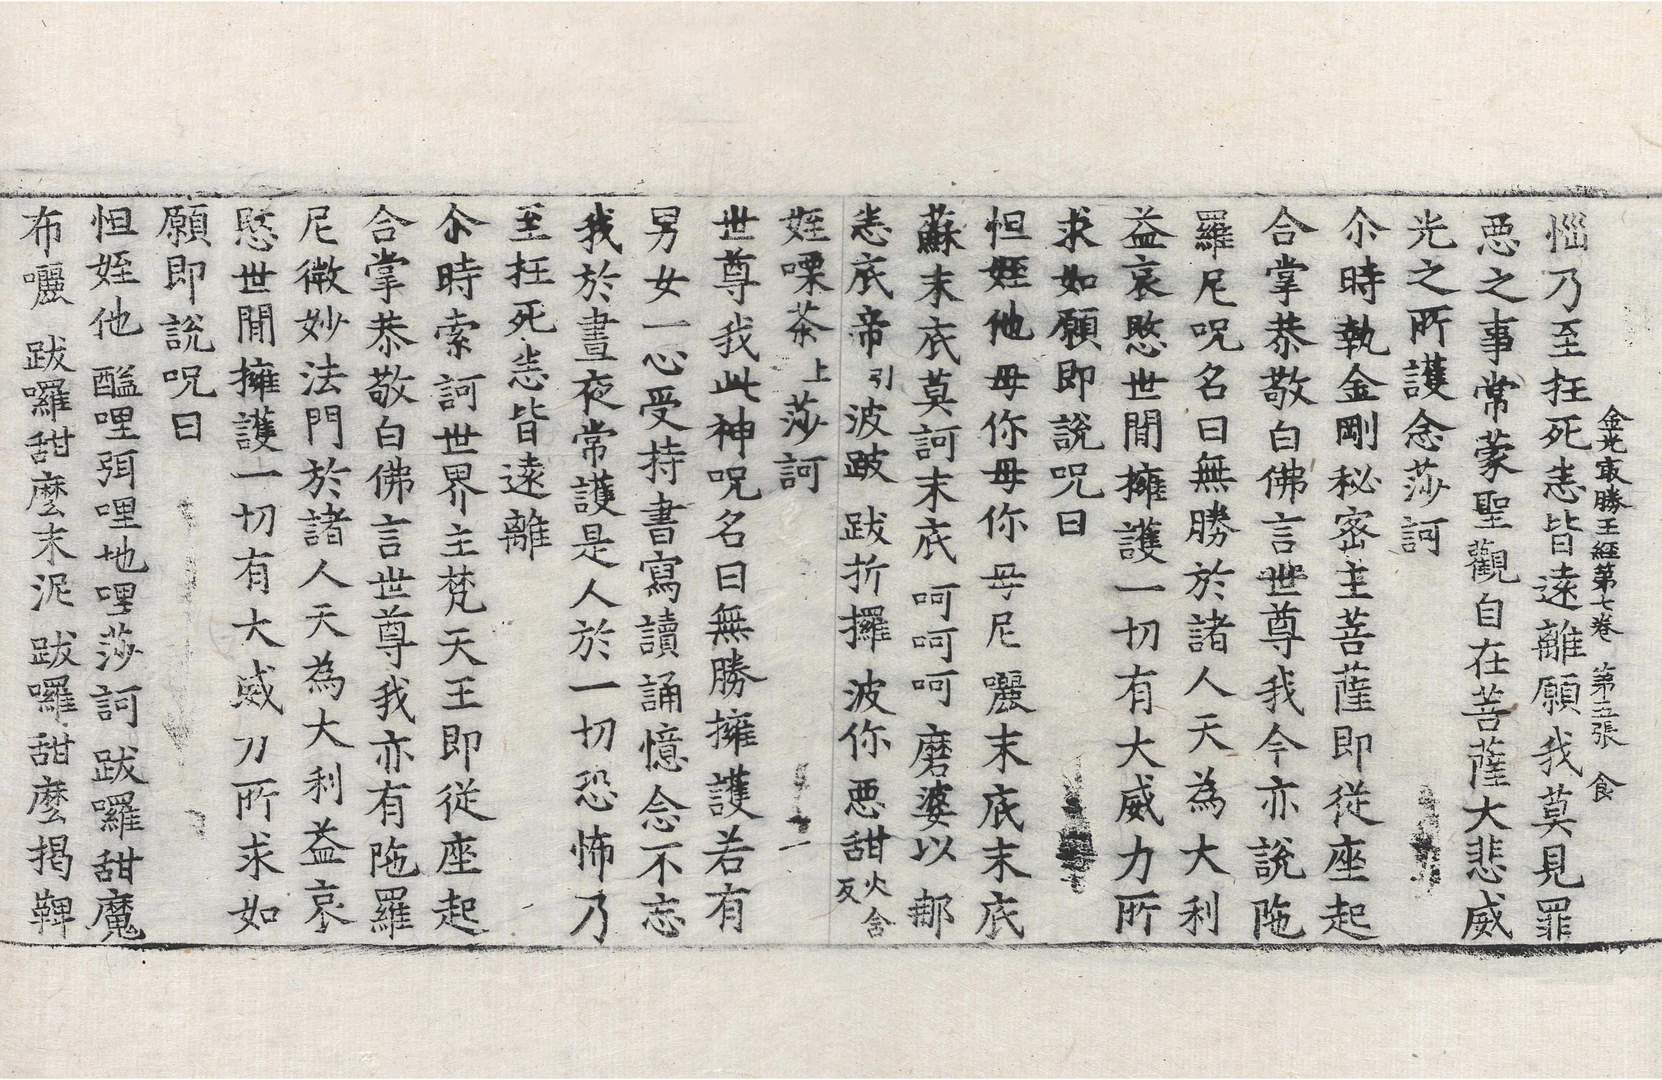 金光㝡勝王經第七卷　第五張　食
惱乃至抂死悉皆遠離願我莫見罪
惡之事常蒙聖觀自在菩薩大悲威
光之所護念莎訶
尒時執金剛秘密主菩薩即從座起
合掌恭敬白佛言世尊我今亦說陁
羅尼呪名曰無勝於諸人天為大利
益哀愍世間擁護一切有大威力所
求如願即說呪曰
怛姪他 毋你毋你 毋尼囇末底末底
蘇末底莫訶末底 呵呵呵 磨婆以 那
悉底帝引波跛 跋折攞波你 惡甜火含反
姪㗚茶上莎訶
世尊我此神呪名曰無勝擁護若有
男女一心受持書寫讀誦憶念不忘
我於晝夜常護是人於一切恐怖乃
至抂死悉皆遠離
尒時索訶世界主梵天王即從座起
合掌恭敬白佛言世尊我亦有陁羅
尼微妙法門於諸人天為大利益哀
愍世間擁護一切有大威力所求如
願即說呪曰
怛姪他 醯哩弭哩地哩莎訶 跋囉甜魔
布囇 跋囉甜麼末泥 跋囉甜麼揭鞞